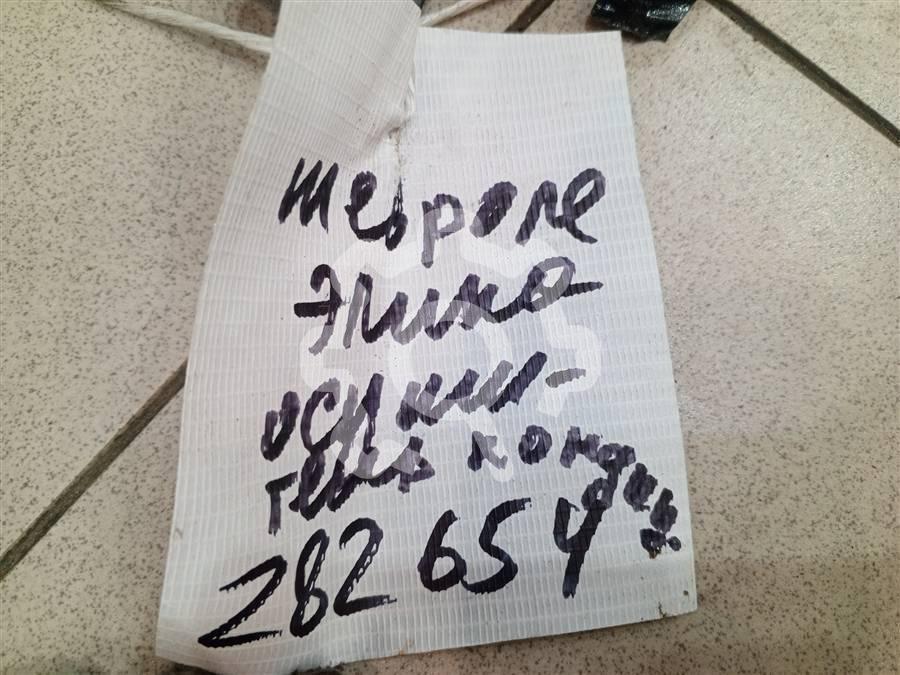 Шевроле
Эпика
осушитель
кондиц.
282654